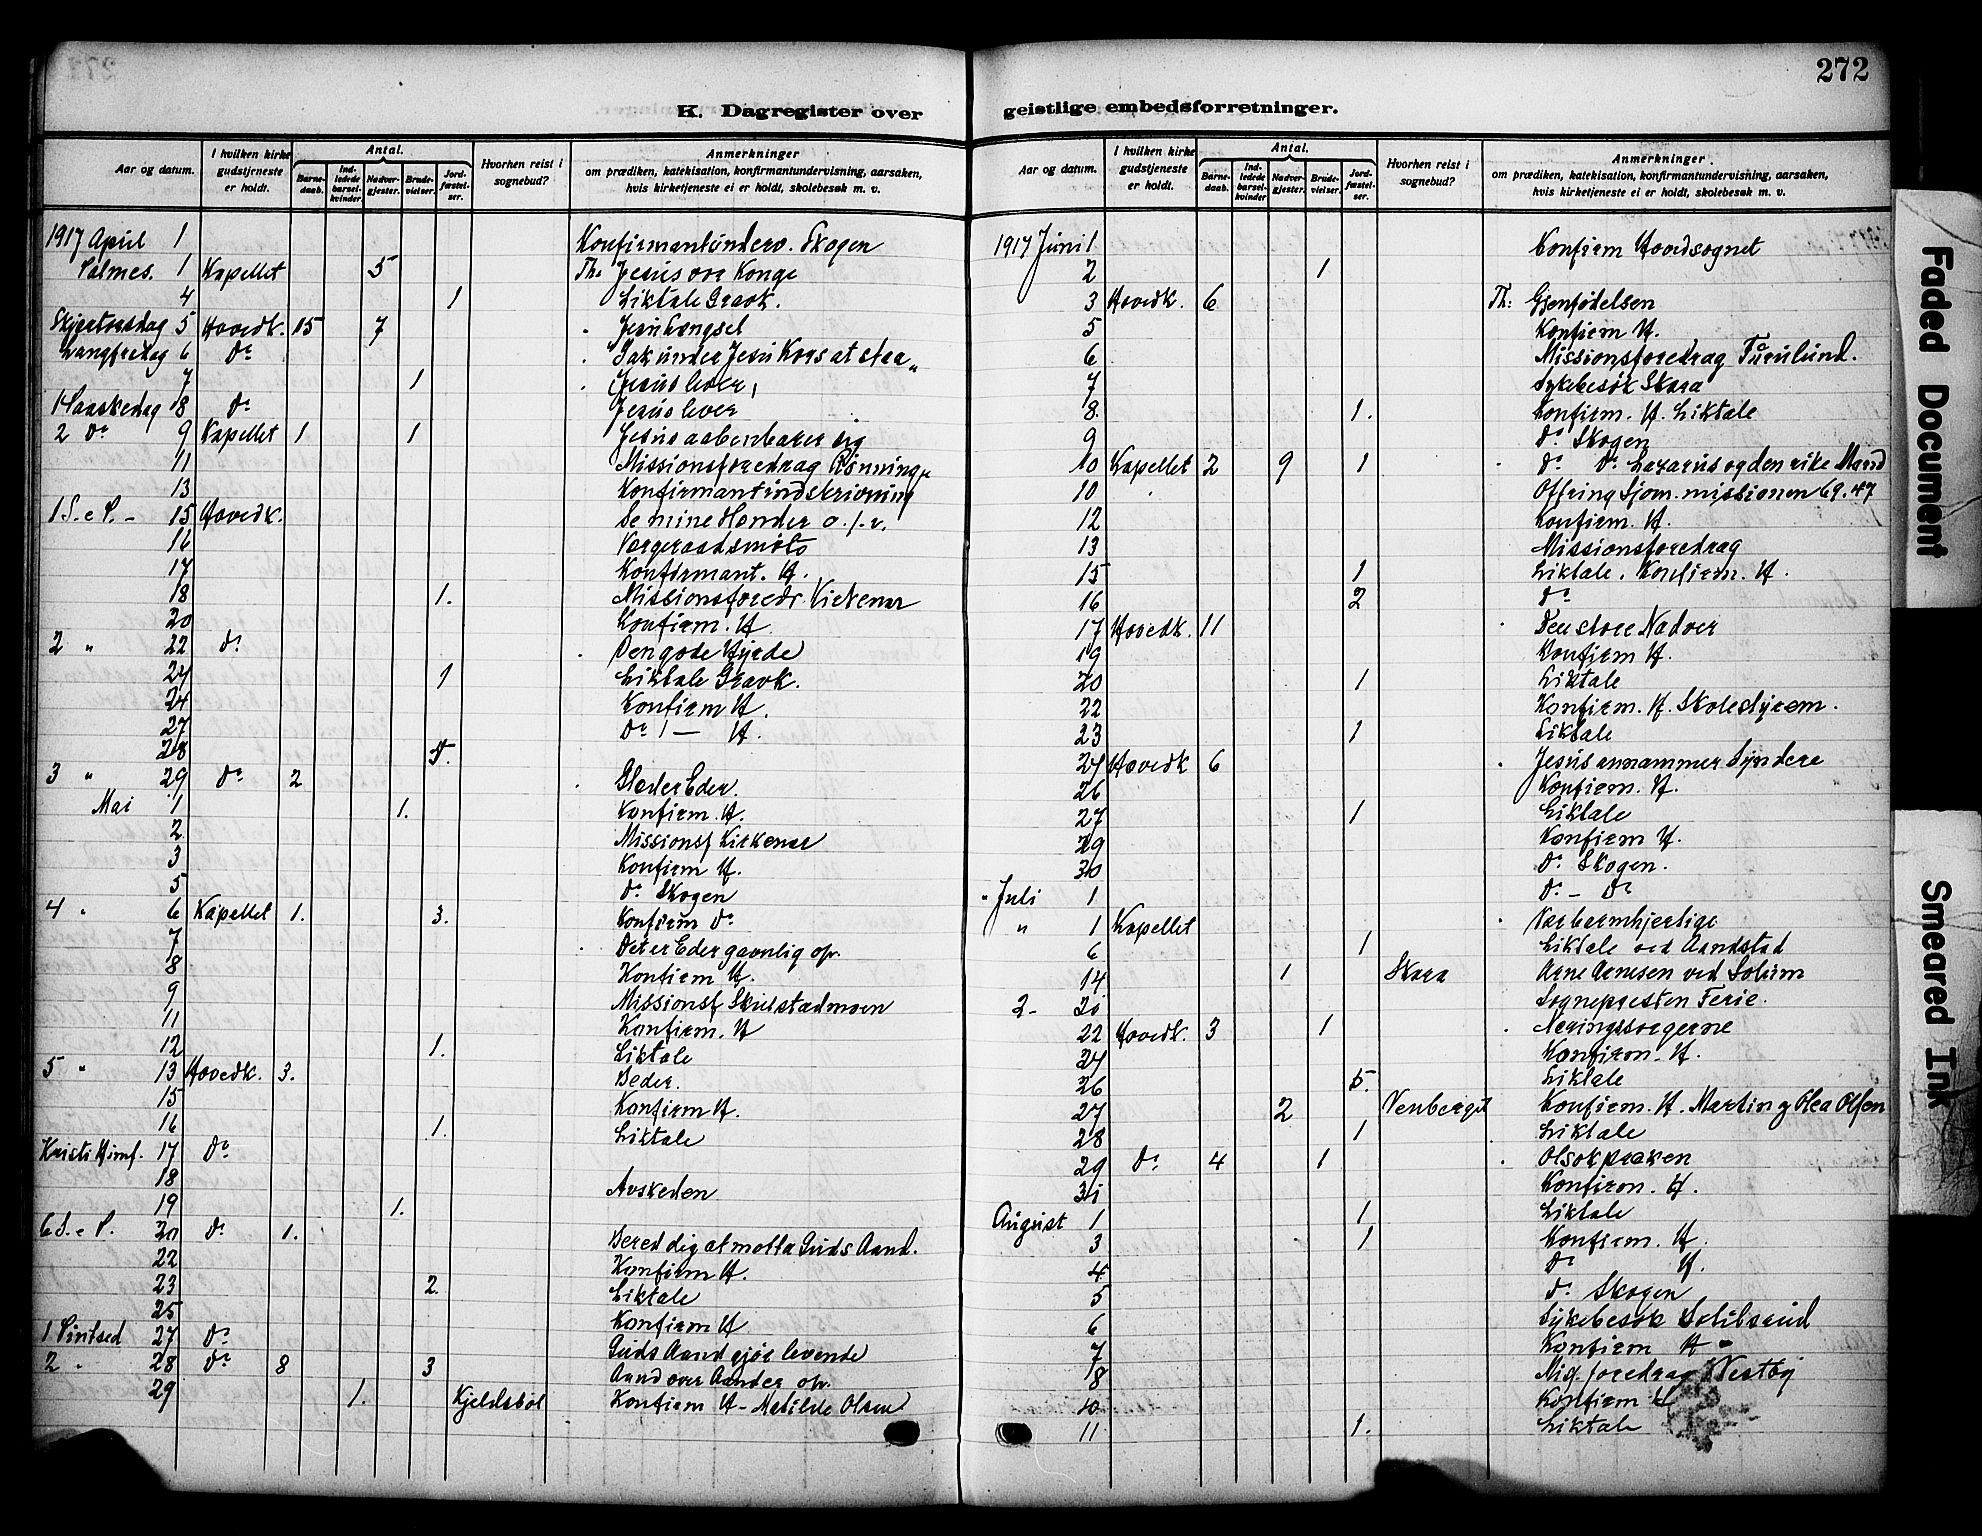 272
K. Dagregister over geistlige embedsforretninger.
Aar og datum. I hvilken kirke gudstjeneste er holdt. Antal. Barnedaab. Indledede barselkvinder. Nadvergjester. Brudevielser. Jordfæstelser. Hvorhen reist i sognebud? Anmerkninger om prædiken, katekisation, konfirmantundervisning, aarsaken, hvis kirketjeneste ei er holdt, skolebesøk m. v.
1917 April 1 Konfirmantunderv. Skogen
Palmes. 1 Kapellet 5 Th: Jesus vor Konge
4 1 Liktale Gravk.
Skjærtorsdag 5 Hovedk. 15 7 Jesu Længsel
Langfredag 6 Do Tak under Jesu Kors at staa
7 1 Jesus lever
1 Paaskedag 8 Do Jesus lever
2 Do 9 Kapellet 1 1 Jesus aabenbarer sig
11 Missionsforedrag Rønninge
13 Konfirmantindskrivning
1 S. e P. - 15 Hovedk. Se mine Hænder o.s.v.
16 Vergeraadsmøte
17 Konfirmant. H.
18 1. Missionsforedr. Kirkenær
20 Konfirm. H.
2 " 22 Do Den gode Hyrde
24 1 Liktale Gravk.
24 Konfirm H.
27 Do - H.
28 5.
3 " 29 Do 2 Glæder Eder.
Mai 1 1. Konfirm. H.
2 Missionsf Kirkenær
3 Konfirm H.
5 Do Skogen
4 " 6 Kapellet 1. 3. Konfirm Do
7 Det er Eder gavnlig
8 Konfirm H.
9 Missionsf Skulstadmoen
11 Konfirm. H
12 1. Liktale
5 " 13 Hovedk. 3. Beder.
15 Konfirm H.
16 1. Liktale
Kristi Himf. 17 Do
18 Avskeden
19 1.
6 S. e P. 20 Do 1. Bered dig at motta Guds Aand.
22 Konfirm H.
23 2. Liktale
25 Konfirm H
1 Pintsed 27 Do Guds Aand gjør levende
2 " 28 Do 8 3 Aand over Aander
29 1. Kjeldsbøl Konfirm H - Matilde Olsen
Aar og datum. I hvilken kirke gudstjeneste er holdt. Antal. Barnedaab. Indledede barselkvinder. Nadvergjester. Brudevielser. Jordfæstelser. Hvorhen reist i sognebud? Anmerkninger om prædiken, katekisation, konfirmantundervisning, aarsaken, hvis kirketjeneste ei er holdt, skolebesøk m. v.
1917 Juni 1 Konfirm Hovedsognet
2 1
3 Hovedk. 6 Th: Gjenfødelsen
5 Konfirm H.
6 Missionsforedrag Furulund.
7 Sykebesøk Skara
8 1. Konfirm. H. Liktale
9 Do Skogen
10 Kapellet 2 9 1 Do Do Lazarus og den rike Mand
10 Offring Sjøm. missionen 69.47
12 Konfirm. H.
13 Missionsforedrag
15 1 Liktale. Konfirm. H.
16 2 Do
17 Hovedk. 11 Den store Nadver
19 Konfirm H.
20 1 Liktale
22 Konfirm. H. Skolestyrem.
23 1 Liktale
24 Hovedk 6 Jesus annammer Syndere
26 Konfirm. H.
27 1 Liktale
29 Konfirm H.
30 Do Skogen.
" Juli 1 Do - Do
" 1 Kapellet Vær barmhjertige
6 1 Liktale ved Aandstad
14 1 Skara Arne Arnesen ved Solum
2- 20 Sognepresten Ferie.
22 Hovedk. 3 1 Næringssorgerne
24 Konfirm. H.
26 5. Liktale
27 2 Venberget Konfirm. H. Martin og Olea Olsen
28 1 Liktale
29 Do 4 1 Olsokpræken
31 Konfirm. H.
August 1 1 Liktale
3 1 Konfirm. H.
4 Do H.
5 Do Skogen
6 Sykebesøk
7 Konfirm H
8 Mis. foredrag Vestby
10 Konfirm H
11 1. Liktale
Faded Document
Smeared Ink